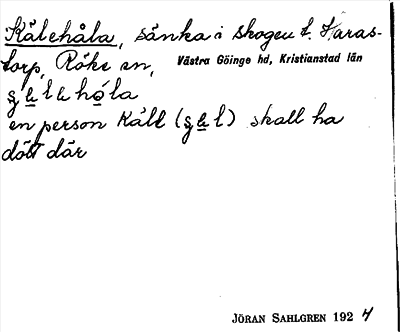 Kälehåla, sänka i skogen t. Haras-
torp, Röke sn, Västra Göinge hd, Kristianstad län
en person Käll ( ) skall ha
dött där
JÖRAN SAHLGREN 1924